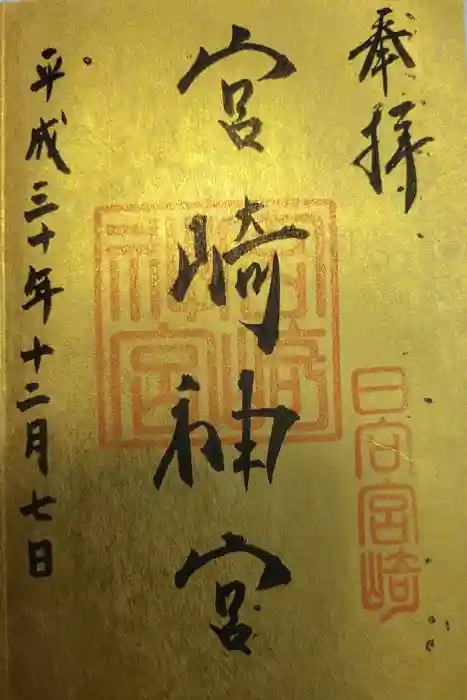 奉拝
日向宮崎
宮崎神宮
宮崎神宮
平成三十年十二月七日